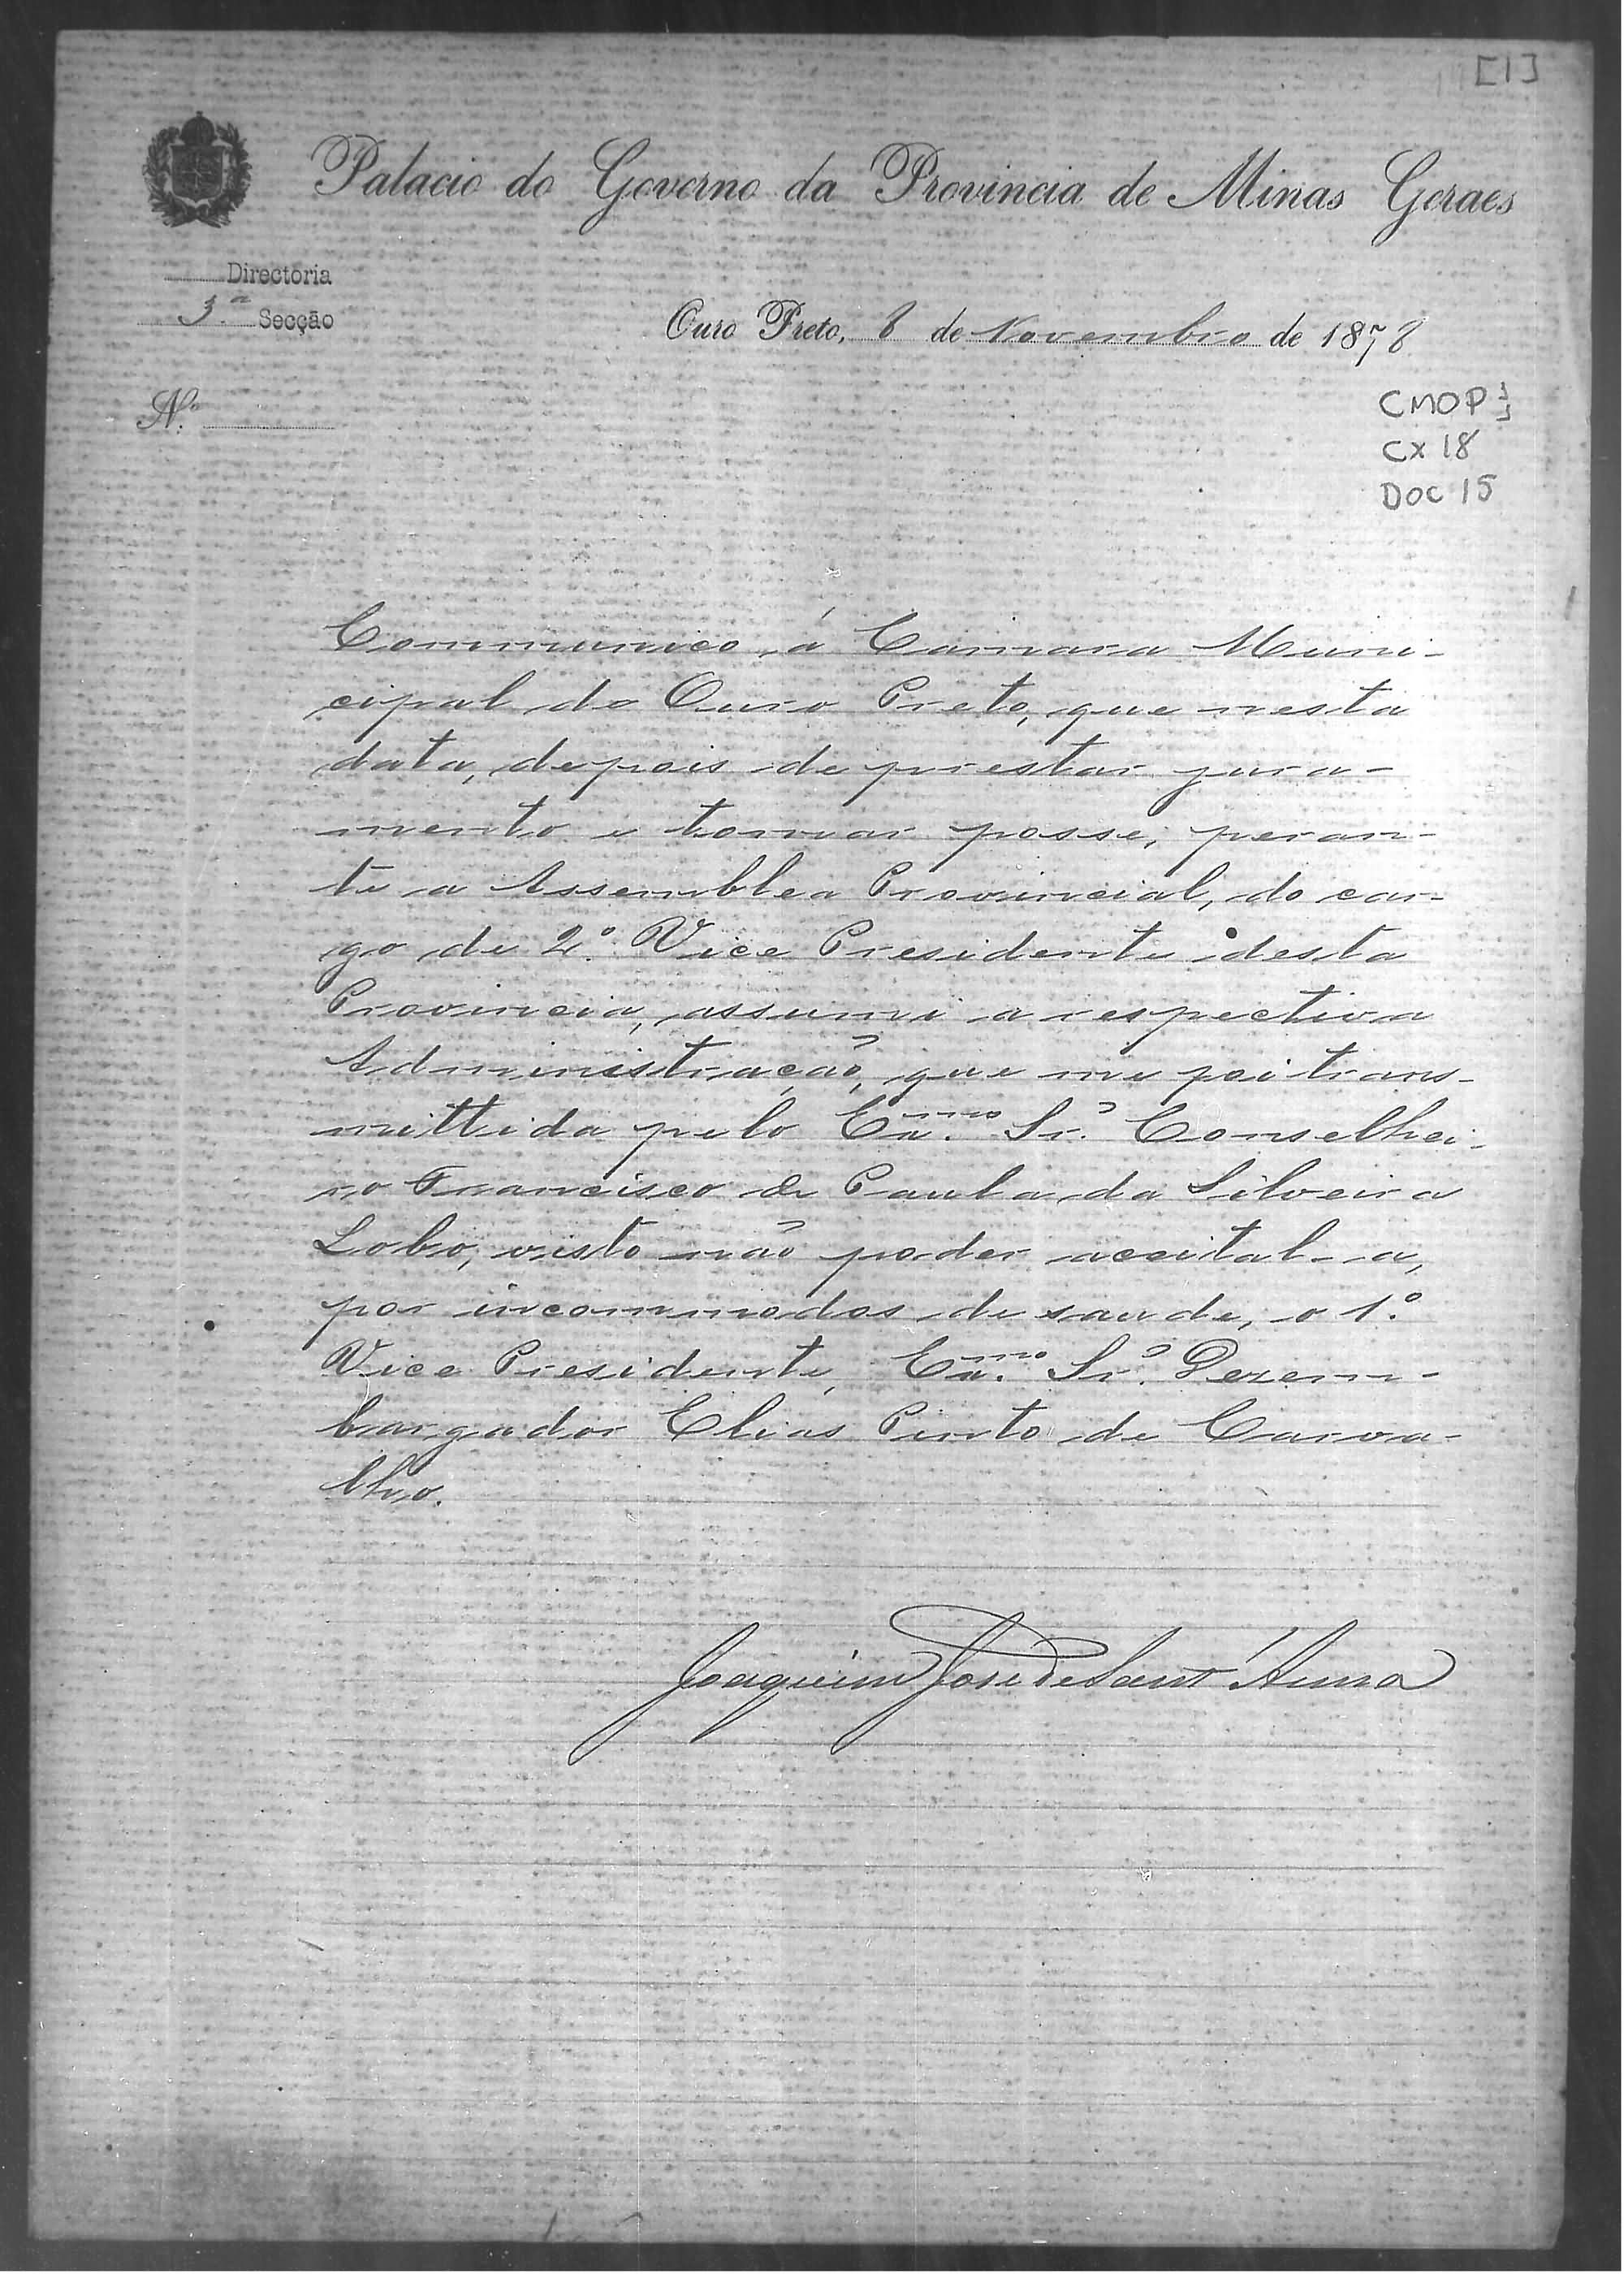 [1]
Palacio do Governo da Provincia de Minas Geraes
Directoria
3.ª Secção
Ouro Preto, 8 de Novembro de 1878
N.º
CMOP
CX 18
DOC 15
Communico á Camara Muni-
cipal do Ouro Preto, que nesta
data, depois de prestar jura-
mento e tomar posse, peran-
te a Assemblea Provincial, do car-
go de 2.º Vice Presidente desta
Provincia, assumi a respectiva
Administração, que me foi trans-
mittida pelo Ex.mo Sr. Conselhei-
ro Francisco de Paula da Silveira
Lobo, visto não poder aceital-a,
por incommodos de saude, o 1.º
Vice Presidente, Ex.mo Sr. Dezem-
bargador Elias Pinto de Carva-
lho.
Joaquim José de Sant'Anna